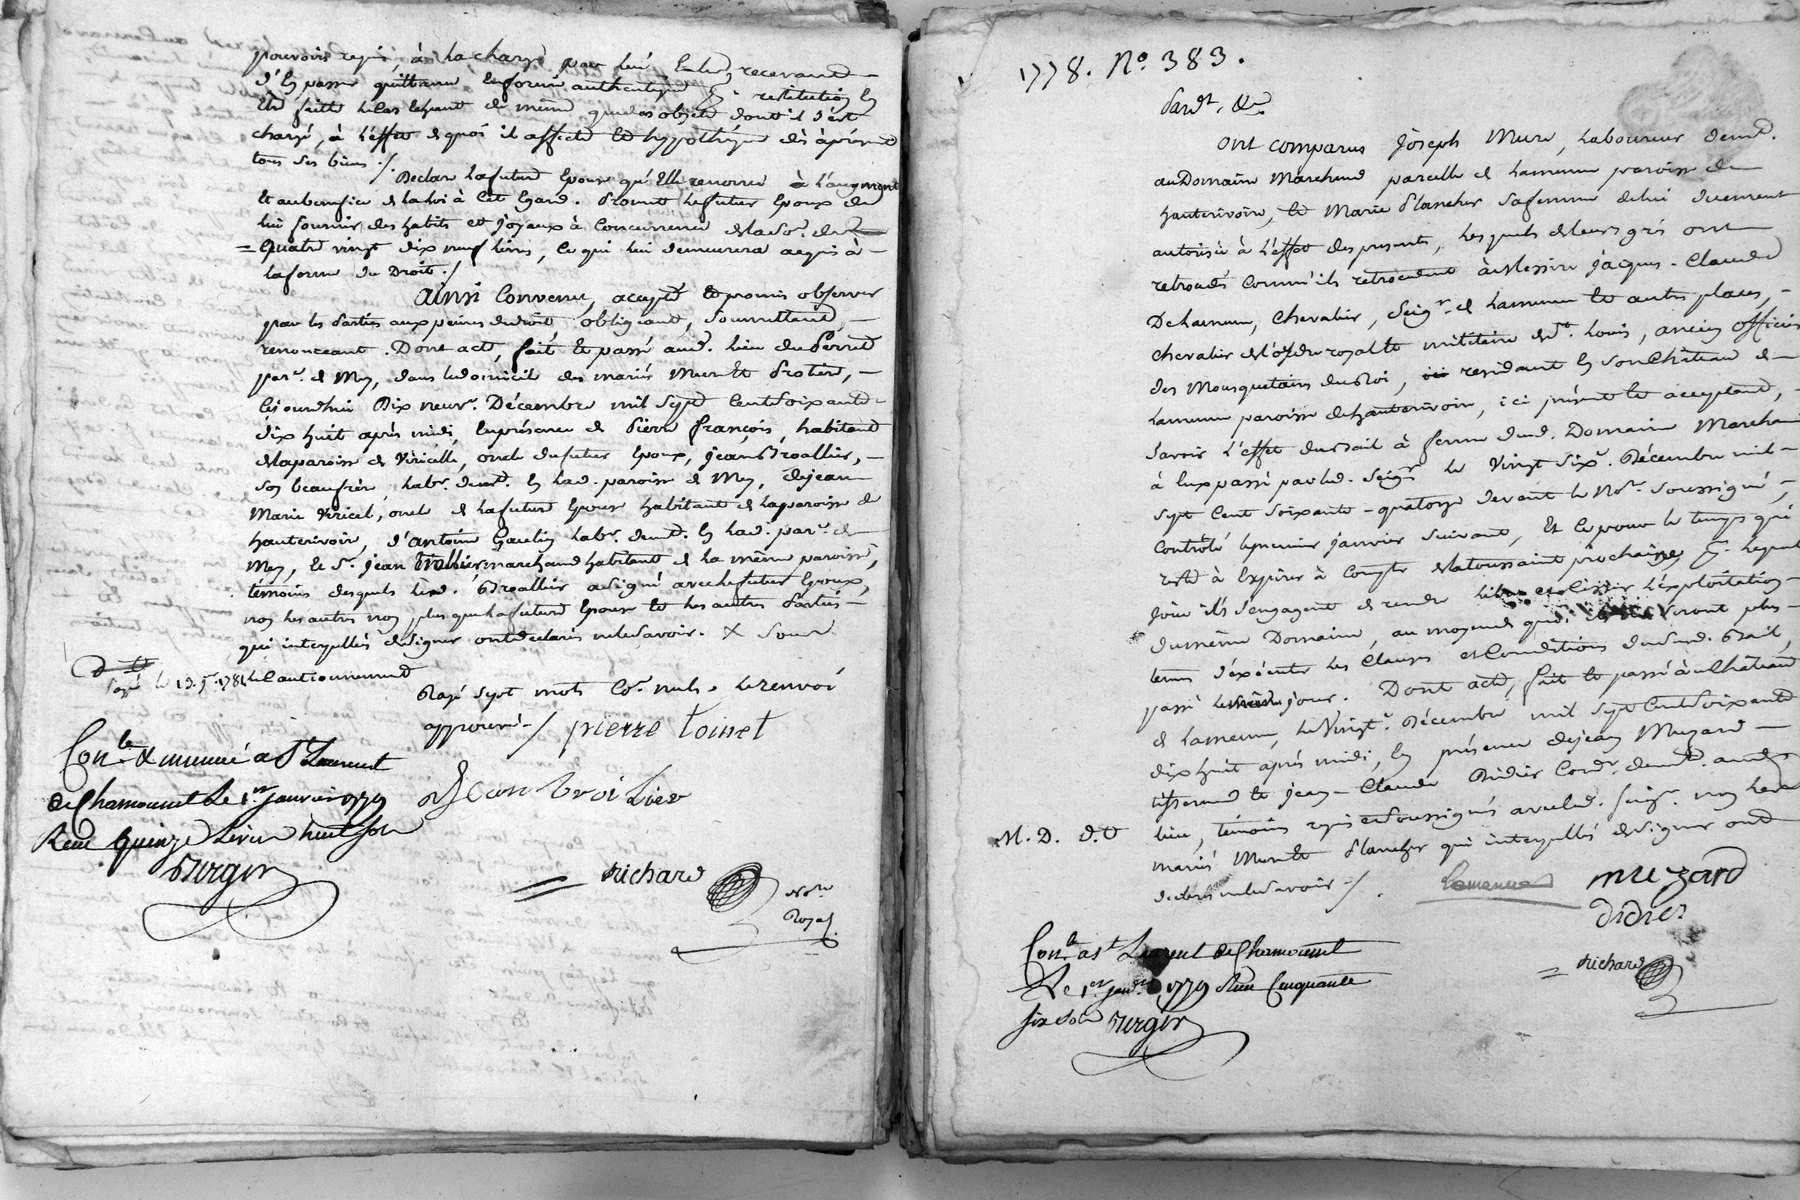 pouvoirs requis, à la charge par lui, en les recevant
d'en passer quittance en forme authentique & restitution en
être faitte le cas echeant de même que des objets dont il s'est
chargé, à l'effet de quoi il affecte et hypothéque dès àprésent
tous ses biens ./
Declare la future Epouse qu'Elle renonce à l'augment
Et au benefice de la loi à cet Egard. Promet le futur Epoux de
lui fournir des habits et joyaux à concurrence de la so.e de
= Quatre vingt dix neuf livres, ce qui lui demeurera acquis à
la forme du Droit ./
Ainsi Convenu, accepté et promis observer
par les Parties aux peines de droit, obligeant, soumettant,
renonceant. Dont acte, fait et passé aud. lieu du Perret
par.e de Mey, dans le domicile des mariés Mure et Protiere,
Cejourdhui Dix neuv.e Décembre mil sept Cent soixante
dix huit après midi, En présence de Pierre françois, habitant
de la paroisse de Viricelle, oncle du futur Epoux, jean Broallier,
son beaufrère lab.r demt. En lad. paroisse de Mey, de jean
Marie Viricel, oncle de la future Epouse habitant de la paroisse de
hauterivoire, d'antoine Gaulin lab.r demt. En lad. par.e de
Mey, & S.r jean marchand habitant de la même paroisse,
témoins desquels led. Broallier a signé avec le futur Epoux,
non les autres non plus que la future Epouse et les autres Parties
qui interpellés de signer ont declarés ne le savoir. X sous
le Cautionnement
Rayé sept mots Co.e nuls. le renvoi
approuvé ./ pierre toinet
Con.lé & insinué a St Laurent
de Chamousset Le 1.er janvier 1779
Reçu quinze Livres huit sols
Burgin
Jean broi Lier
Richard
No.re
Royal
1778. No. 383.
Pardt. &c.
Ont comparus Joseph Mure, laboureur demt.
au Domaine Marchand parcelle de lamenue paroisse de
hauterivoire, et Marie Plancher sa femme de lui duement
autorisée à l'effet des presentes, lesquels de leurs grés ont
retrocedés comm'ils retrocedent à Messire jacques-Claude
Delamenue, Chevalier, Seig.r de lamenue et autres places,
chevalier de l'ordre royal et militaire de St. Louis, ancien officier
des Mousquetaires du Roi, residant en son Château de
lamenue paroisse de hauterivoire, ici présent et acceptant,
savoir l'effet du Bail à ferme dud. Domaine Marchand
à Eux passé par led. Seig.r le Vingt Six.e Décembre mil
sept Cent soixante-quatorze devant le No.re soussigné,
Contrôlé le premier janvier suivant, Et ce pour le temps qui
reste à Expirer à compter de la toussaint prochaine, Epoque
Pour ils s'engagent de rendre l'Exploitation
du même Domaine, au moyen de quoi seront plus
tenus d'éxécuter les Clauses et Conditions dudit. Bail,
passé le jour. Dont acte, fait et passé à au Château
de lamenue, le Vingt.e Décembre mil sept Cent soixante
dix huit après midi, En présence de jean Muzard
tisserand et jean-Claude Didier Cord.r demt. aud.
lieu, témoins requis et soussignés avec led. Seig.r non les
mariés Mure et Plancher qui interpellés de signer ont
declarés ne le savoir ./
M. D. d.O
Lamenue muzard
didier
Richard
Con.lé a St Laurent de Chamousset
Le 1.er janv.r 1779 Reçu Cinquante
six sols Burgin